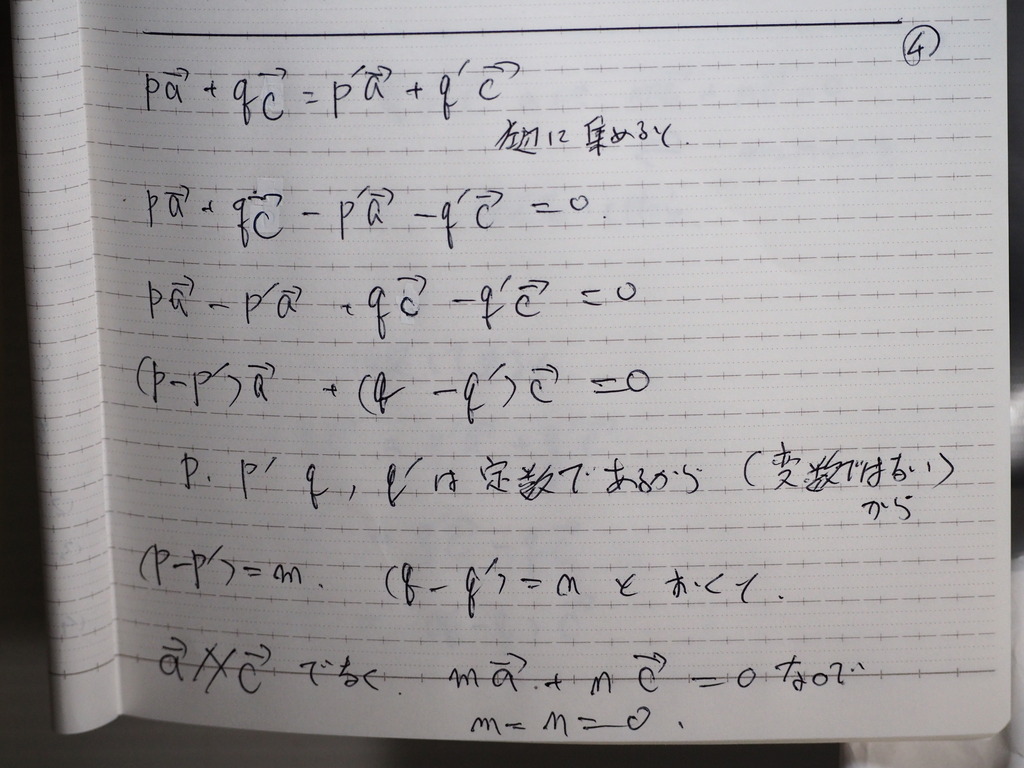 ④
p\vec{a} + q\vec{c} = p'\vec{a} + q'\vec{c}
左辺に集めると.
p\vec{a} + q\vec{c} - p'\vec{a} - q'\vec{c} = 0.
p\vec{a} - p'\vec{a} + q\vec{c} - q'\vec{c} = 0
(p-p')\vec{a} + (q - q')\vec{c} = 0
p. p' q, q' は定数であるから (変数ではない)
から
(p-p') = m. (q - q') = n とおくと.
\vec{a} ∦ \vec{c} でなく. m\vec{a} + n\vec{c} = 0 なので
m = n = 0.